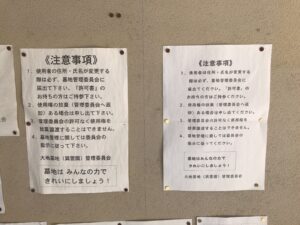 《注意事項》
1. 使用者の住所・氏名が変更する
際は必ず、墓地管理委員会に
届出て下さい。「許可書」の
お持ちの方はご持参下さい。
2. 使用権の放棄（管理委員会へ返
却）ある場合は申し出て下さい。
3. 管理委員会の許可なく使用権を
譲渡することはできません。
4. 墓地管理に関しては委員会の
指示に従って下さい。
大地墓地 管理委員会
墓地は みんなの力で
きれいにしましょう！
《注意事項》
1. 使用者は住所・氏名が変更する
際は必ず、墓地管理委員会に
届出てください。「許可書」の
お持ちの方はご持参ください。
2. 使用権の放棄（管理委員会へ返
却）ある場合は申し出て下さい。
3. 管理委員会の許可なく使用権を
譲渡することはできません。
4. 墓地管理に関しては委員会の
指示に従って下さい。
墓地はみんなの力で
きれいにしましょう！
大地墓地 管理委員会